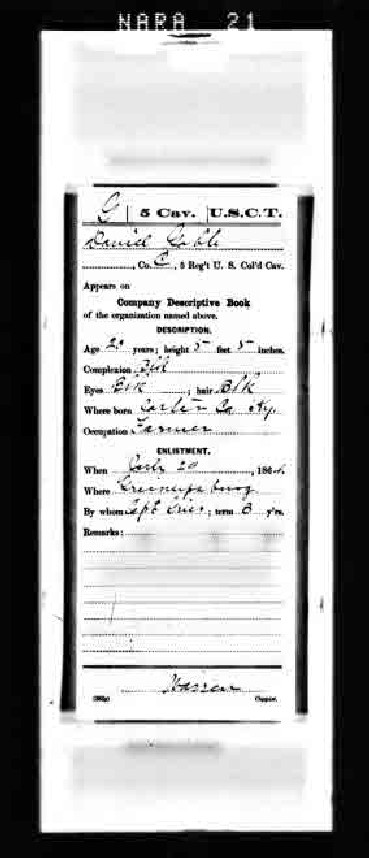 NARA 21
G | 5 Cav. | U.S.C.T.
David Goble
, Co. C, 5 Reg't U. S. Col'd Cav.
Appears on
Company Descriptive Book
of the organization named above.
DESCRIPTION.
Age years; height 5 feet 5 inches.
Complexion
Eyes Blk ; hair Blk
Where born Carter Co Ky.
Occupation Farmer
ENLISTMENT.
When 20, 1864.
Where
By whom Capt ; term 3 y'rs.
Remarks:
Copyist.